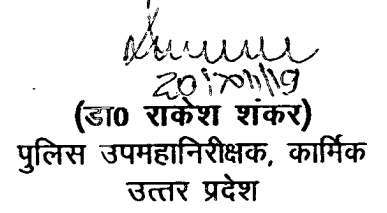 (डा0 राकेश शंकर)
पुलिस उपमहानिरीक्षक, कार्मिक
उत्तर प्रदेश